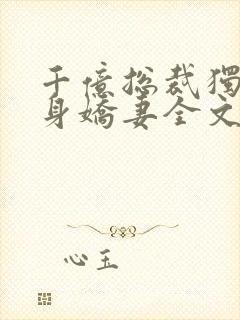 千億總裁獨
身嬌妻全文
心玉